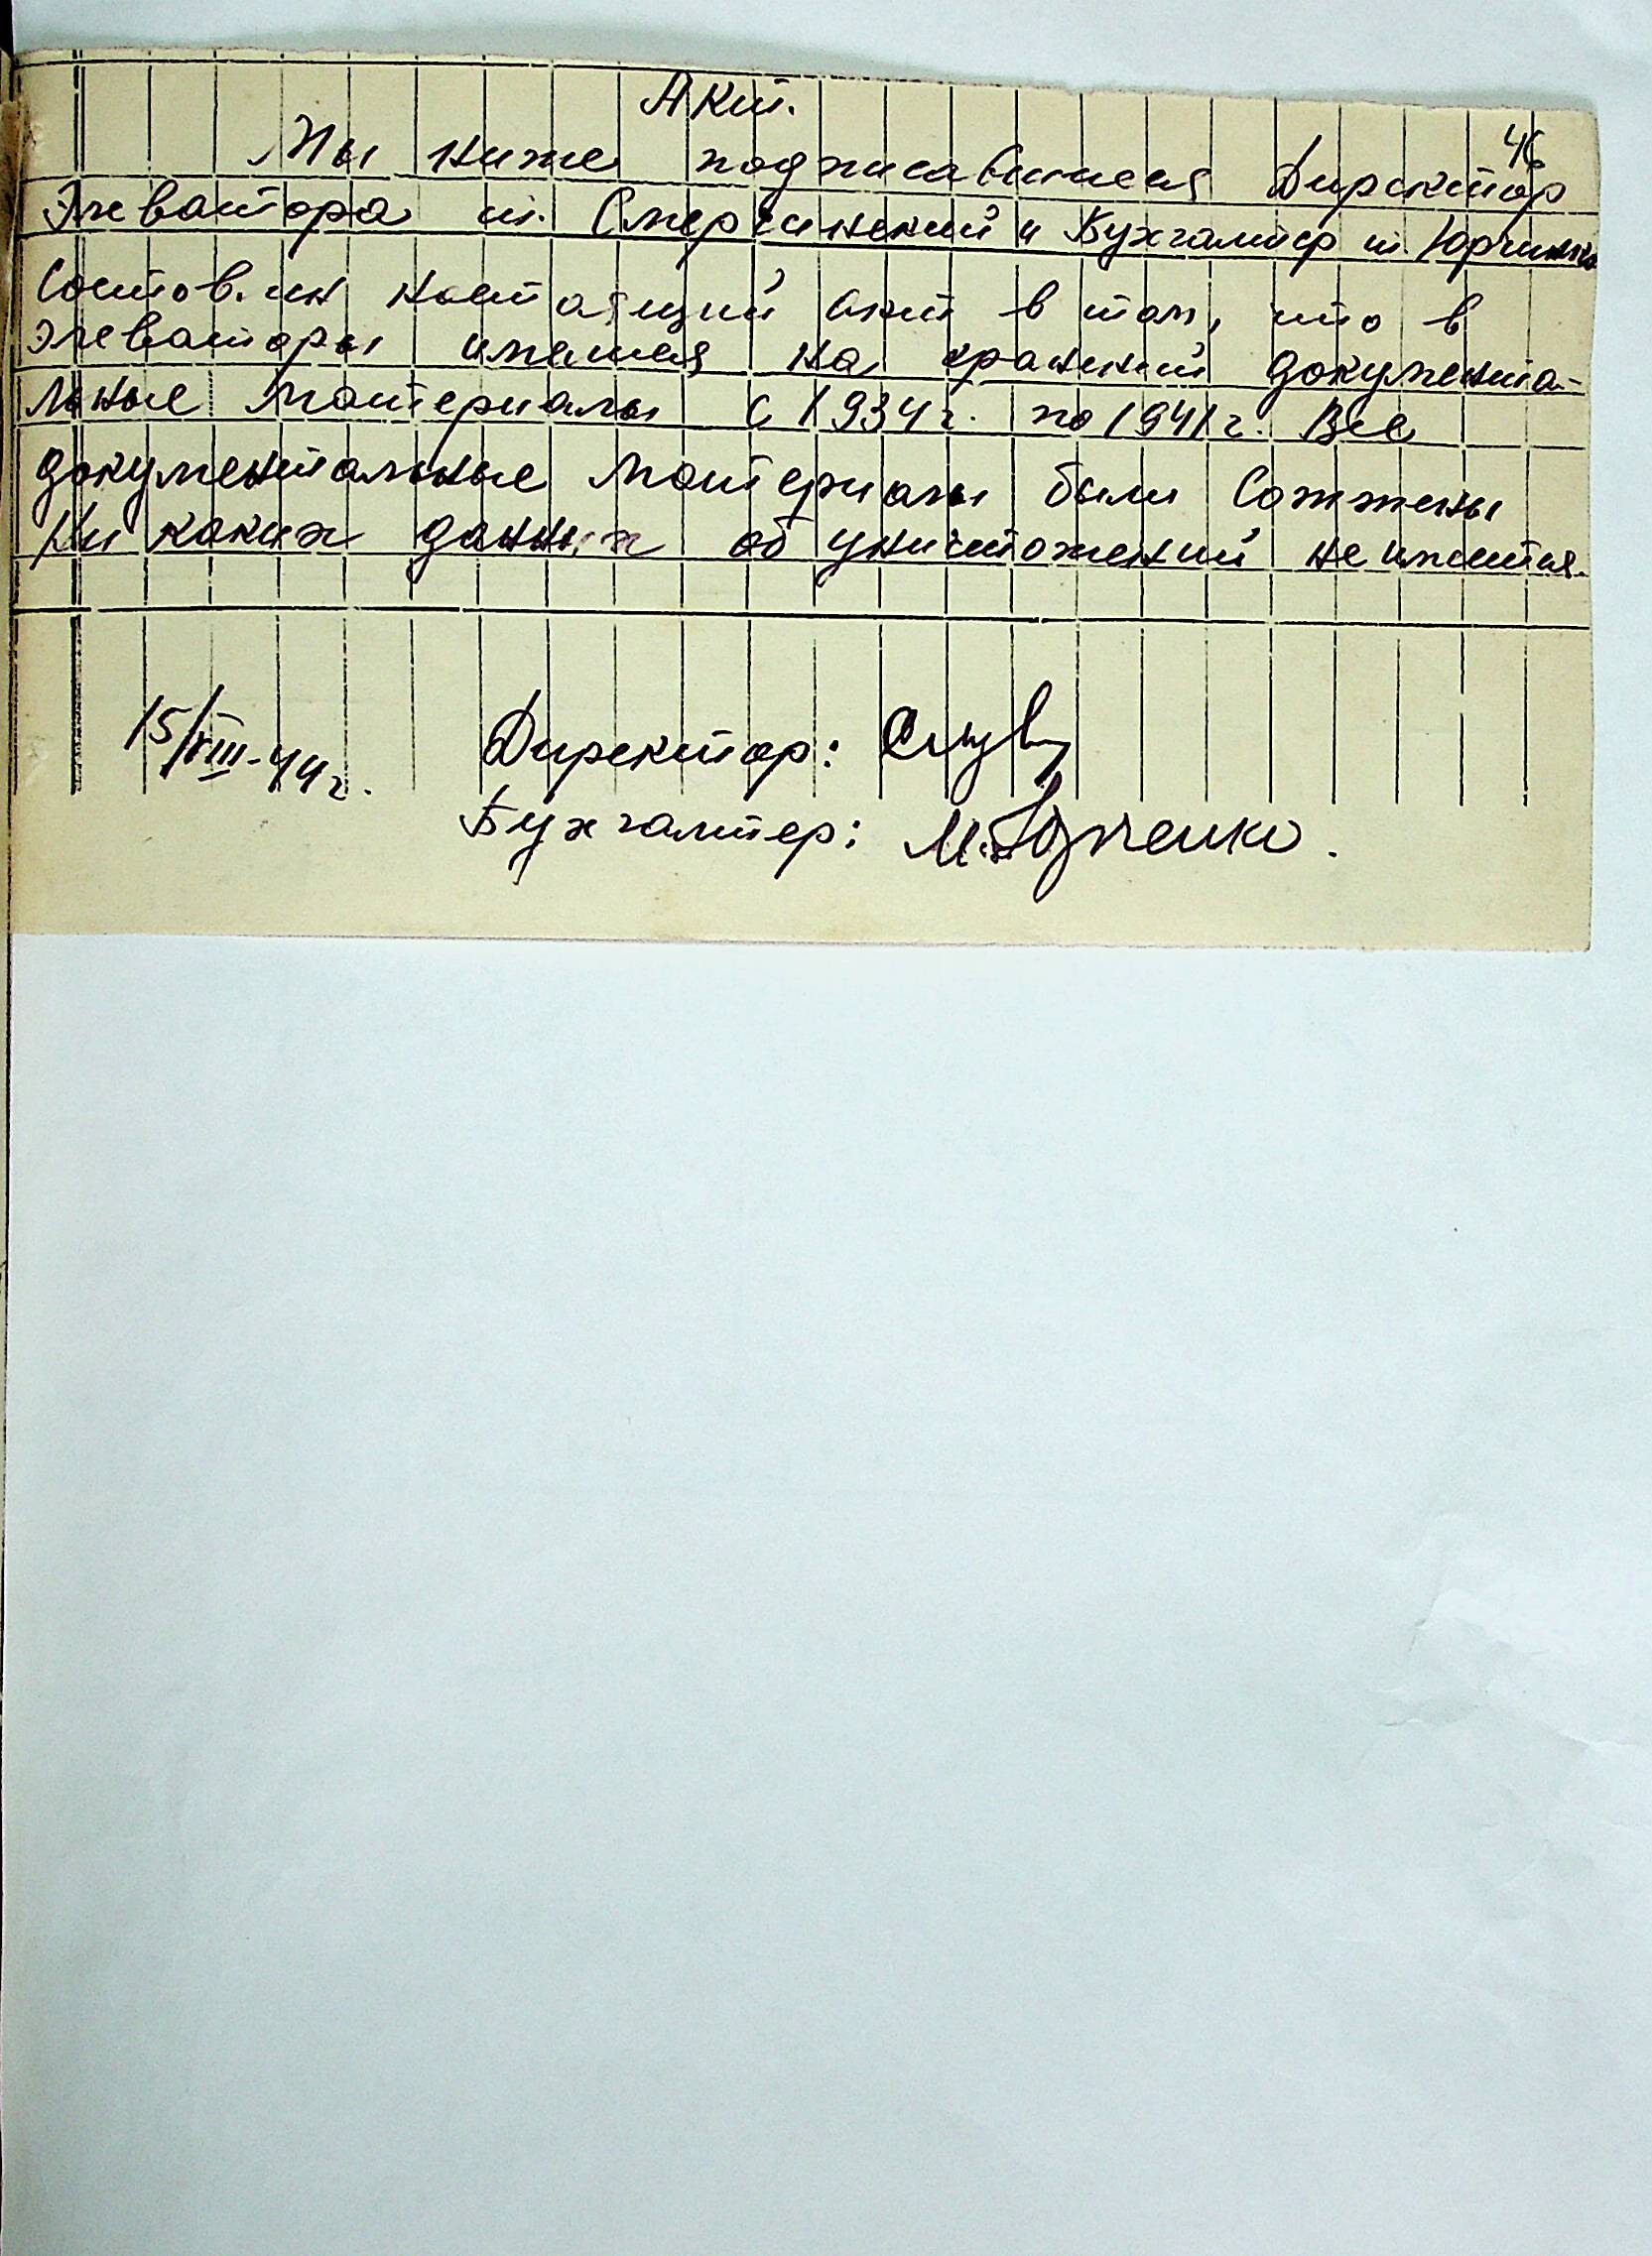 Акт.
46
Мы ниже подписавшиеся Директор
Элеватора т. и Бухгалтер т. Юрченко
Составлен настоящий акт в том, что в
элеваторы имелися на хранений документа-
льные материалы с 1934 г. по 1941 г. Все
документальные материалы были Сожжены
Ни каких данных об уничтожений не имеется.
15/VIII-44 г.
Директор:
Бухгалтер: М. Юрченко.